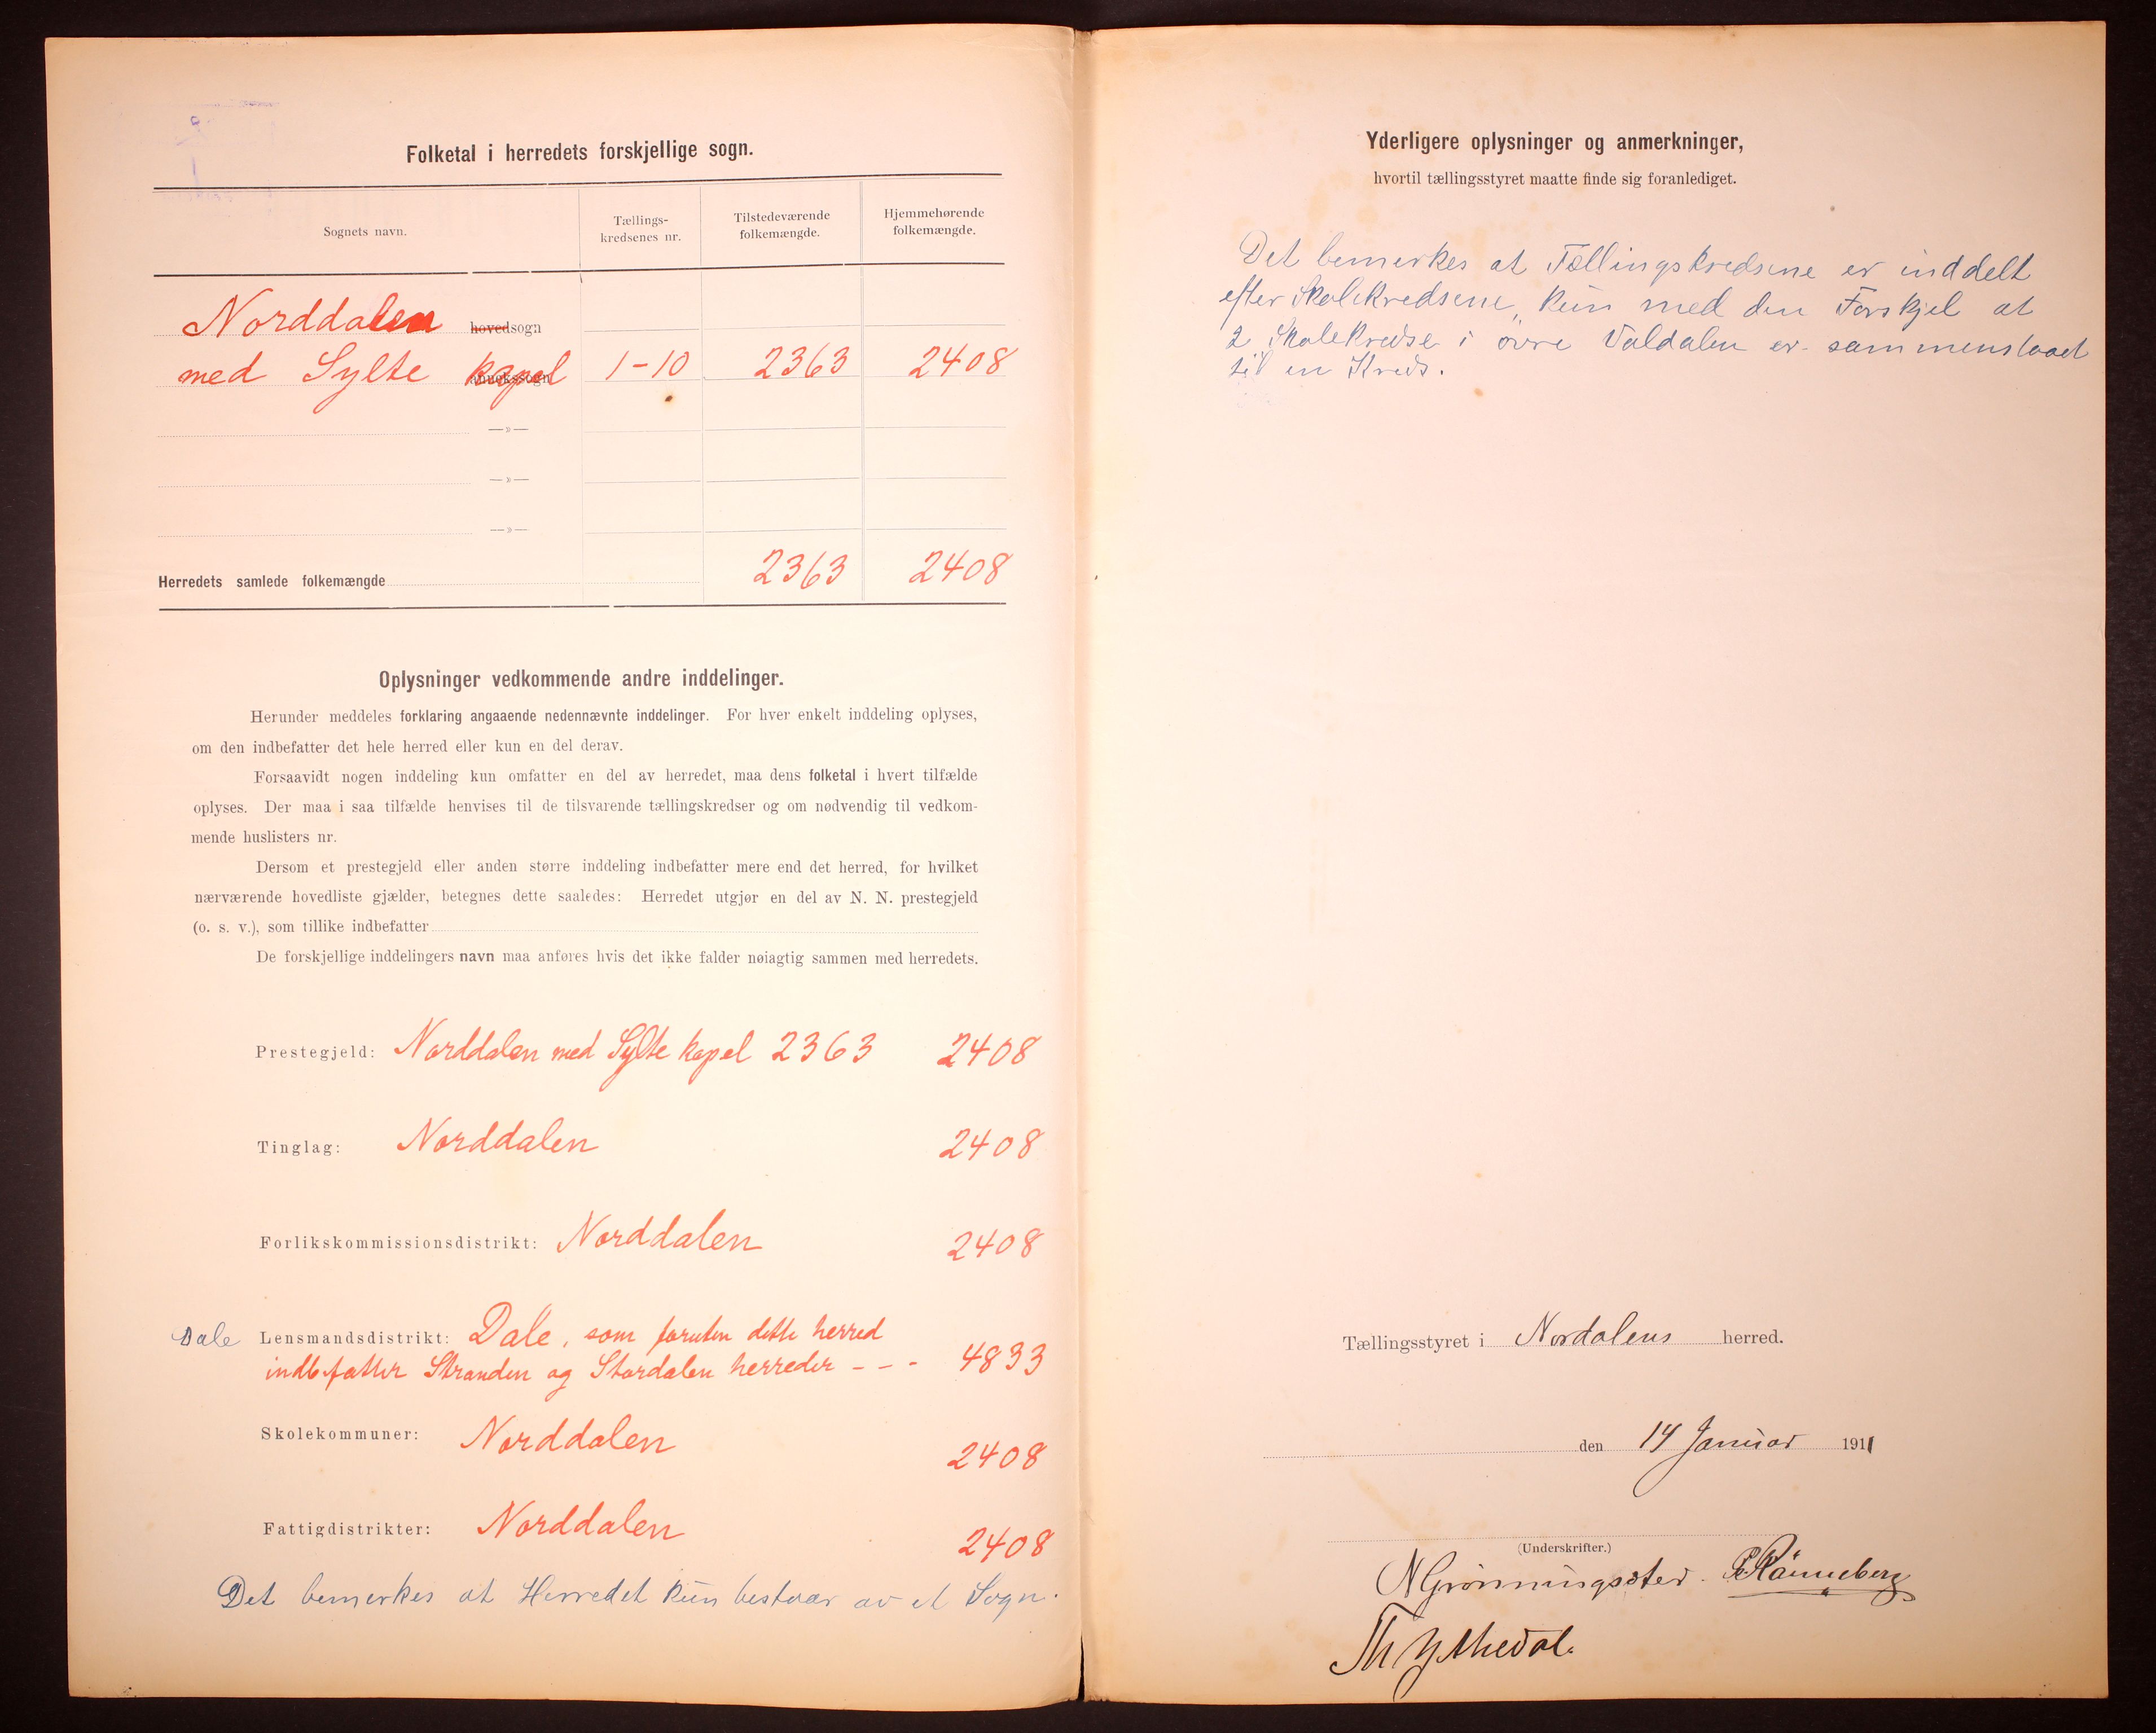 Folketal i herredets forskjellige sogn.
Sognets navn.
Tællings-
kredsenes nr.
Tilstedeværende
folkemængde.
Hjemmehørende
folkemængde.
Norddalen hovedsogn
med Sylte kapel 1-10 2363 2408
—»—
—»—
—»—
Herredets samlede folkemængde 2363 2408
Oplysninger vedkommende andre inddelinger.
Herunder meddeles forklaring angaaende nedennævnte inddelinger. For hver enkelt inddeling oplyses,
om den indbefatter det hele herred eller kun en del derav.
Forsaavidt nogen inddeling kun omfatter en del av herredet, maa dens folketal i hvert tilfælde
oplyses. Der maa i saa tilfælde henvises til de tilsvarende tællingskredser og om nødvendig til vedkom-
mende huslisters nr.
Dersom et prestegjeld eller anden større inddeling indbefatter mere end det herred, for hvilket
nærværende hovedliste gjælder, betegnes dette saaledes: Herredet utgjør en del av N. N. prestegjeld
(o. s. v.), som tillike indbefatter
De forskjellige inddelingers navn maa anføres hvis det ikke falder nøiagtig sammen med herredets.
Prestegjeld: Norddalen med Sylte kapel 2363 2408
Tinglag: Norddalen 2408
Forlikskommissionsdistrikt: Norddalen 2408
Dale Lensmandsdistrikt: Dale, som foruten dette herred
indbefatter Stranden og Stordalen herreder - - - 4833
Skolekommuner: Norddalen 2408
Fattigdistrikter: Norddalen 2408
Det bemerkes at Herredet kun bestaar av et Sogn.
Yderligere oplysninger og anmerkninger,
hvortil tællingsstyret maatte finde sig foranlediget.
Det bemerkes at Tællingskredsene er inddelt
efter Skolekredsene, kun med den Forskjel at
2 Skolekredse i øvre Valdalen er sammenslaaet
til en Kreds.
Tællingsstyret i Nordalens herred.
den 14 Januar 1911
(Underskrifter.)
N Grønningsæter. P. Rønneberg
Th Ytterdal.